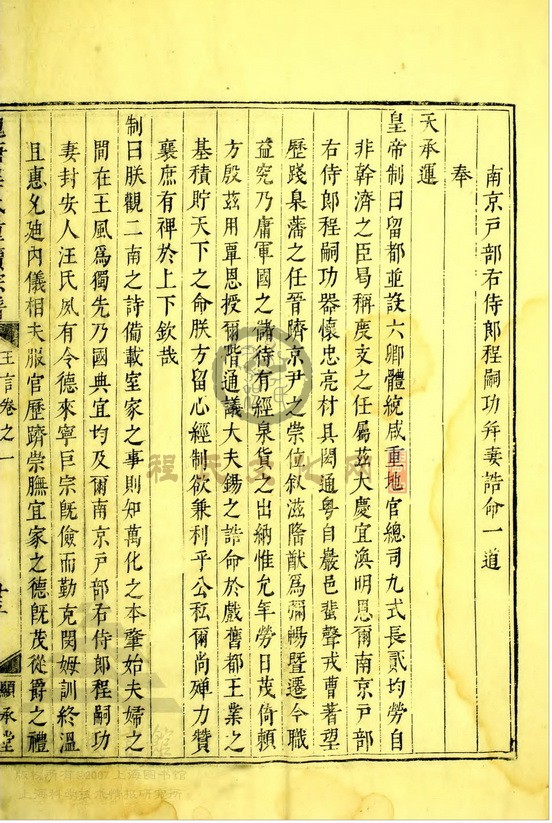 南京戶部右侍郎程嗣功幷妻誥命一道
奉
天承運
皇帝制曰留都並設六卿體統咸重地官總司九式長貳均勞自
非幹濟之臣曷稱度支之任屬茲大慶宜渙明恩爾南京戶部
右侍郎程嗣功器懷忠亮材具閎通粵自巖邑蜚聲戎曹著望
歷踐臬藩之任晉躋京尹之崇位敘滋隆猷為彌暢暨遷今職
益究乃庸軍國之儲待有經泉貨之出納惟允年勞日茂倚賴
方殷茲用覃恩授爾階通議大夫錫之誥命於戲舊都王業之
基積貯天下之命朕方留心經制欲兼利乎公私爾尚殫力贊
襄庶有裨於上下欽哉
制曰朕觀二南之詩備載室家之事則知萬化之本肇始夫婦之
間在王風為獨先乃國典宜均及爾南京戶部右侍郎程嗣功
妻封安人汪氏夙有令德來寧巨宗旣儉而勤克閑姆訓終溫
且惠允廸內儀相夫服官歷躋崇膴宜家之德旣茂從爵之禮
王言卷之一
顯承堂
程氏文化网
版权所有©2007上海图书馆
上海科学技术情报研究所